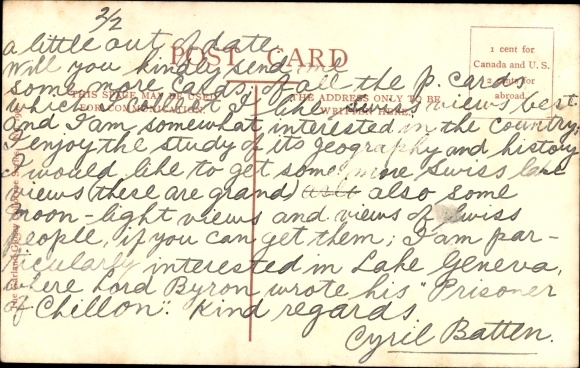 3/2
a little out of date.
POST CARD
Will you kindly send me
some more cards, of all the p. cards
THIS SPACE MAY BE USED FOR COMMUNICATION.
THE ADDRESS ONLY TO BE WRITTEN HERE.
1 cent for
Canada and U. S.
2 cents for
abroad.
which I collect I like swiss views best
and I am somewhat interested in the country.
I enjoy the study of its geography and history
I would like to get some more Swiss lake
views (these are grand) also some
moon-light views and views of Swiss
people, if you can get them; I am par-
ticularly interested in Lake Geneva,
where Lord Byron wrote his "Prisoner
of Chillon". Kind regards
Cyril Batten.